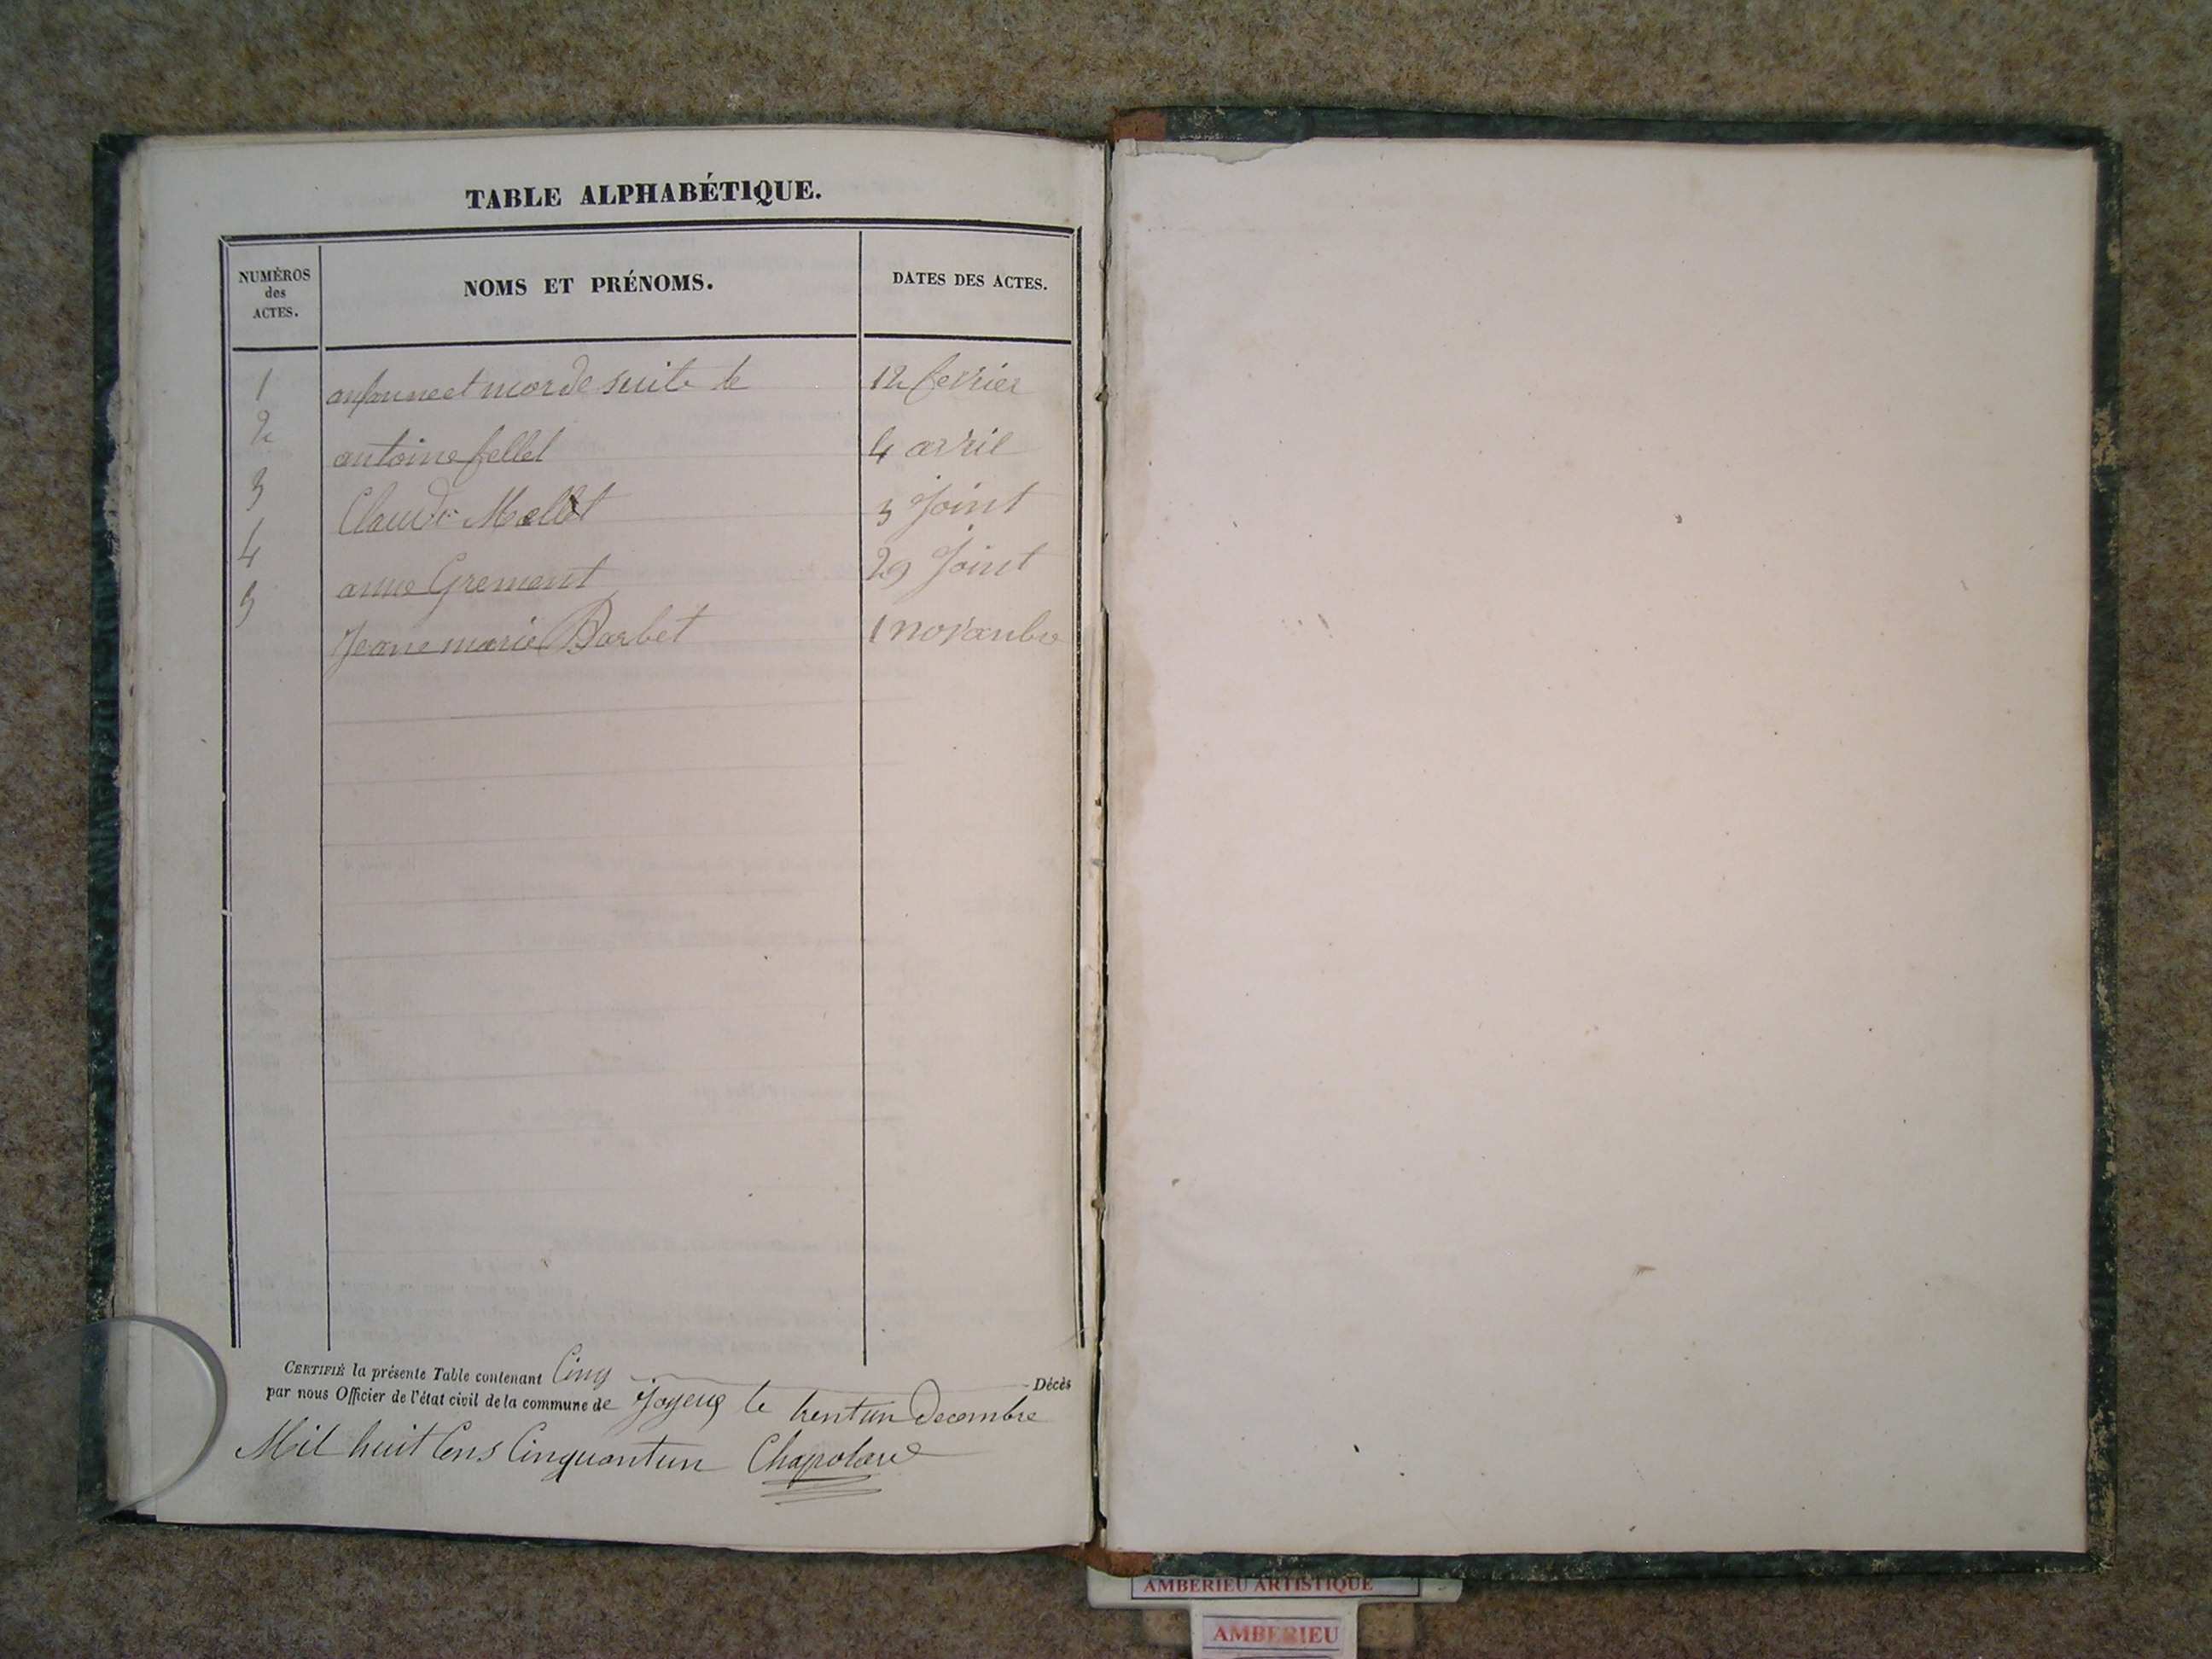 TABLE ALPHABÉTIQUE.
NUMÉROS
des
ACTES.
NOMS ET PRÉNOMS.
DATES DES ACTES.
1 mor de suite le 12 fevrier
2 antoine fellet 4 avril
3 Claude Mollet 3 Joint
4 anne Grement 29 Joint
5 Jeane marie Barbet 1 novanbre
CERTIFIÉ la présente Table contenant Cinq Décès
par nous Officier de l'état civil de la commune de Joyeux le trentun Decembre
Mil huit Cens Cinquantun Chapolard
AMBERIEU ARTISTIQUE
AMBERIEU